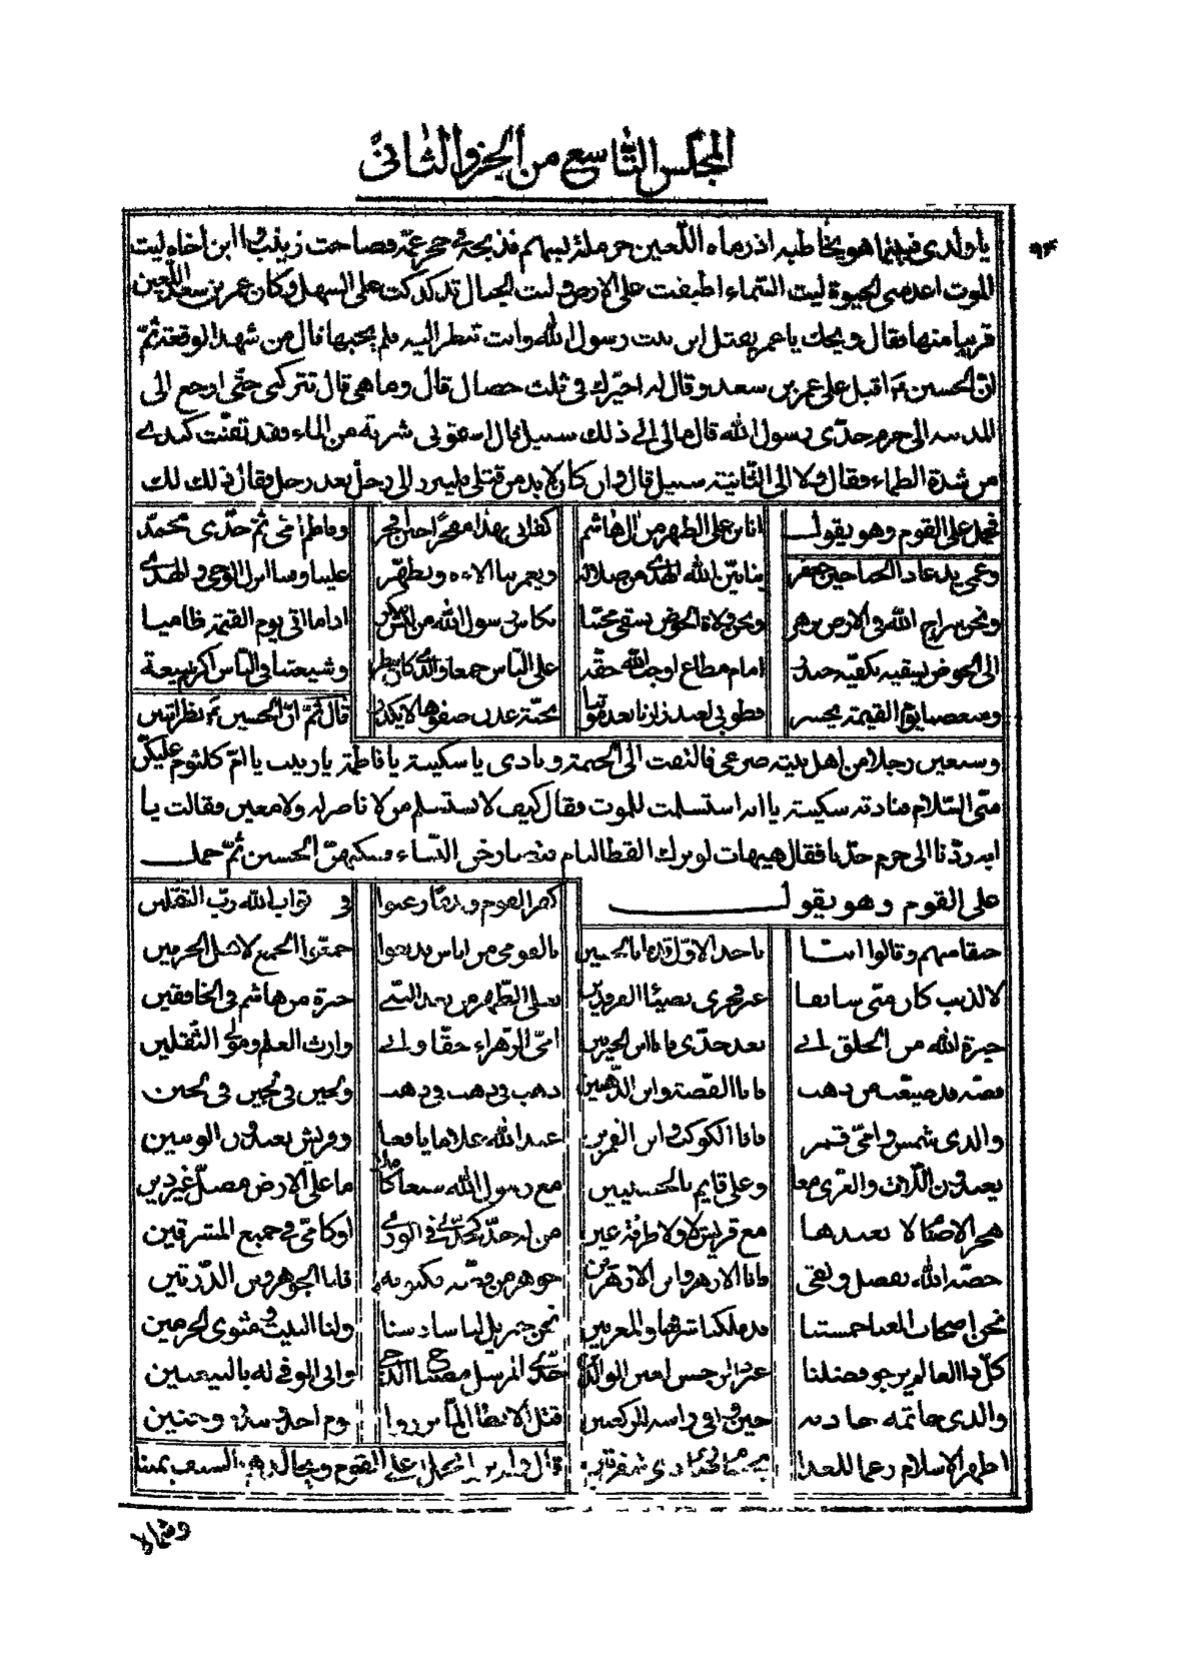 المجلس التاسع من الجزو الثانى
٩٣
يا ولدى فبينما هو يخاطبه اذ رماه اللعين حرملة بسهم فذبحه فى حجر عمه فصاحت زينب وا ابن اخاه ليت
الموت اعدمنى الحيوة ليت السماء اطبقت على الارض وليت الجبال تدكدكت على السهل وكان عمر بن سعد اللعين
قريبا منها فقال ويحك يا عمر يقتل ابن بنت رسول الله وانت تنظر اليه فلم يجبها قال من شهد الوقعة ثم
ان الحسين ع اقبل على عمر بن سعد وقال له اخيرك فى ثلث خصال قال وما هى قال تتركنى حتى ارجع الى
المدينه الى حرم جدى رسول الله قال مالى الى ذلك سبيل قال اسقونى شربة من الماء فقد تفتت كبدى
من شدة الظماء فقال ولا الى الثانية سبيل قال وان كان لا بد من قتلى فليبرد الى رجل بعد رجل فقال ذلك لك
فحمل على القوم وهو يقول انا ابن على الطهر من ال هاشم كفانى بهذا مفخرا حين افخر وفاطم امى ثم جدى محمد
وعمى يدعى ذا الجناحين جعفر بنا بين الله الهدى من ضلالة ويعمر بنا الاءه ويطهر علينا وفينا انزل الوحى والهدى
ونحن سراج الله فى الارض يزهر ونحن ولاة الحوض نسقى محبنا بكاس رسول الله من الكوثر اذا ما اتى يوم القيمة ظاميا
الى الحوض يسقيه بكفيه حيدر امام مطاع اوجب الله حقه على الناس جمعا والذى كان ينظر وشيعتنا فى الناس اكرم شيعة
ومبغضنا يوم القيمة يخسر فطوبى لعبد زارنا بعد موتنا بجنة عدن صفوها لا يكدر قال ثم ان الحسين ع نظر الى اثنين
وسبعين رجلا من اهل بيته صرعى فالتفت الى الخيمة ونادى يا سكينة يا فاطمة يا زينب يا ام كلثوم عليكن
منى السلام فنادته سكينة يا ابه استسلمت للموت فقال كيف لا يستسلم من لا ناصر له ولا معين فقالت يا
ابه ردنا الى حرم جدنا فقال هيهات لو ترك القطا لنام فتصارخن النساء فسكتهن الحسين ثم حمل
على القوم وهو يقول كفر القوم وقدما رغبوا فى ثواب الله رب الثقلين
حنقا منهم وقالوا اننا ناخذ الاول قدما بالحسين يا لقومى من اناس قد بغوا جمعوا الجمع لاهل الحرمين
لا لذنب كان منى سابقا غير فخرى بضياء الفرقدين بعلى الطهر من بعد النبى خيرة من هاشم فى الخافقين
خيرة الله من الخلق ابى بعد جدى فانا ابن الخيرين امى الزهراء حقا وابى وارث العلم ومولى الثقلين
فضه قد صيغت من ذهب فانا الفضة وابن الذهبين ذهب فى ذهب فى ذهب ولجين فى لجين فى لجين
والدى شمس وامى قمر فانا الكوكب وابن القمرين عبد الله غلاما يافعا وقريش يعبدون الوثنين
يعبدون اللات والعزى معا وعلى قايم بالحسنيين مع رسول الله سبعا كاملا ما على الارض مصل غير ذين
هجر الاصنام لا يعبدها مع قريش لا ولا طرفة عين من له جد كجدى فى الورى او كامى فى جميع المشرقين
خصه الله بفضل وتقى فانا الازهر وابن الازهرين جوهر من فضه مكنونه فانا الجوهر وابن الدرتين
نحن اصحاب العبا خمستنا قد ملكنا شرقها والمغربين نحن جبريل لنا سادسنا ولنا البيت ومثوى الحرمين
كل ذا العالم يرجو فضلنا جدى المرسل مصباح الدجى وابى الموفى له بالبيعتين
والدى خاتمه جاد به حين وافى راسه للركعتين قتل الابطال لما برزوا يوم احد وبدر وحنين
اظهر الاسلام رغما للعدا قال ولم يزل يحمل على القوم ويجالدهم بالسيف يمينا
وشمالا